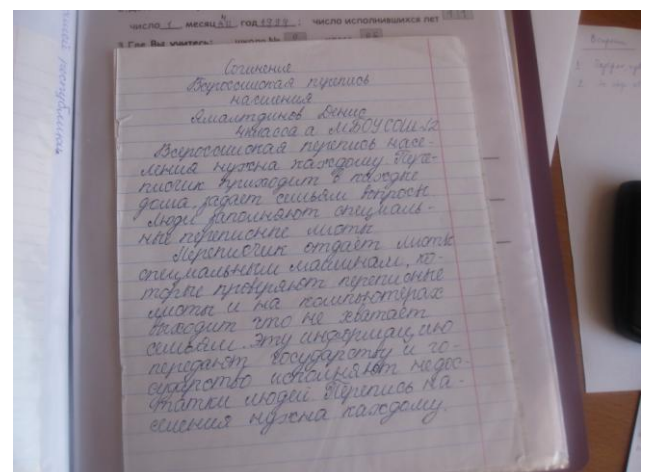 число 1 месяц год 1999 : число исполнившихся лет
3 Где Вы учитесь: школа №
Сочинение
Всероссийская перепись
населения
Ямалтдинов Денис
4 класса а МБОУСОШ-12
Всероссийская перепись насе-
ления нужна каждому. Пере-
писчик приходит в каждые
дома, задает семьям вопросы
Люди заполняют специаль-
ные переписные листы.
Переписчик отдаёт листы
специальным машинам, ко-
торые проверяют переписные
листы и на компьютерах
выходит что не хватает
семьям. Эту информацию
передают государству и го-
сударство исполняют недос-
татки людей. Перепись на-
селения нужна каждому.